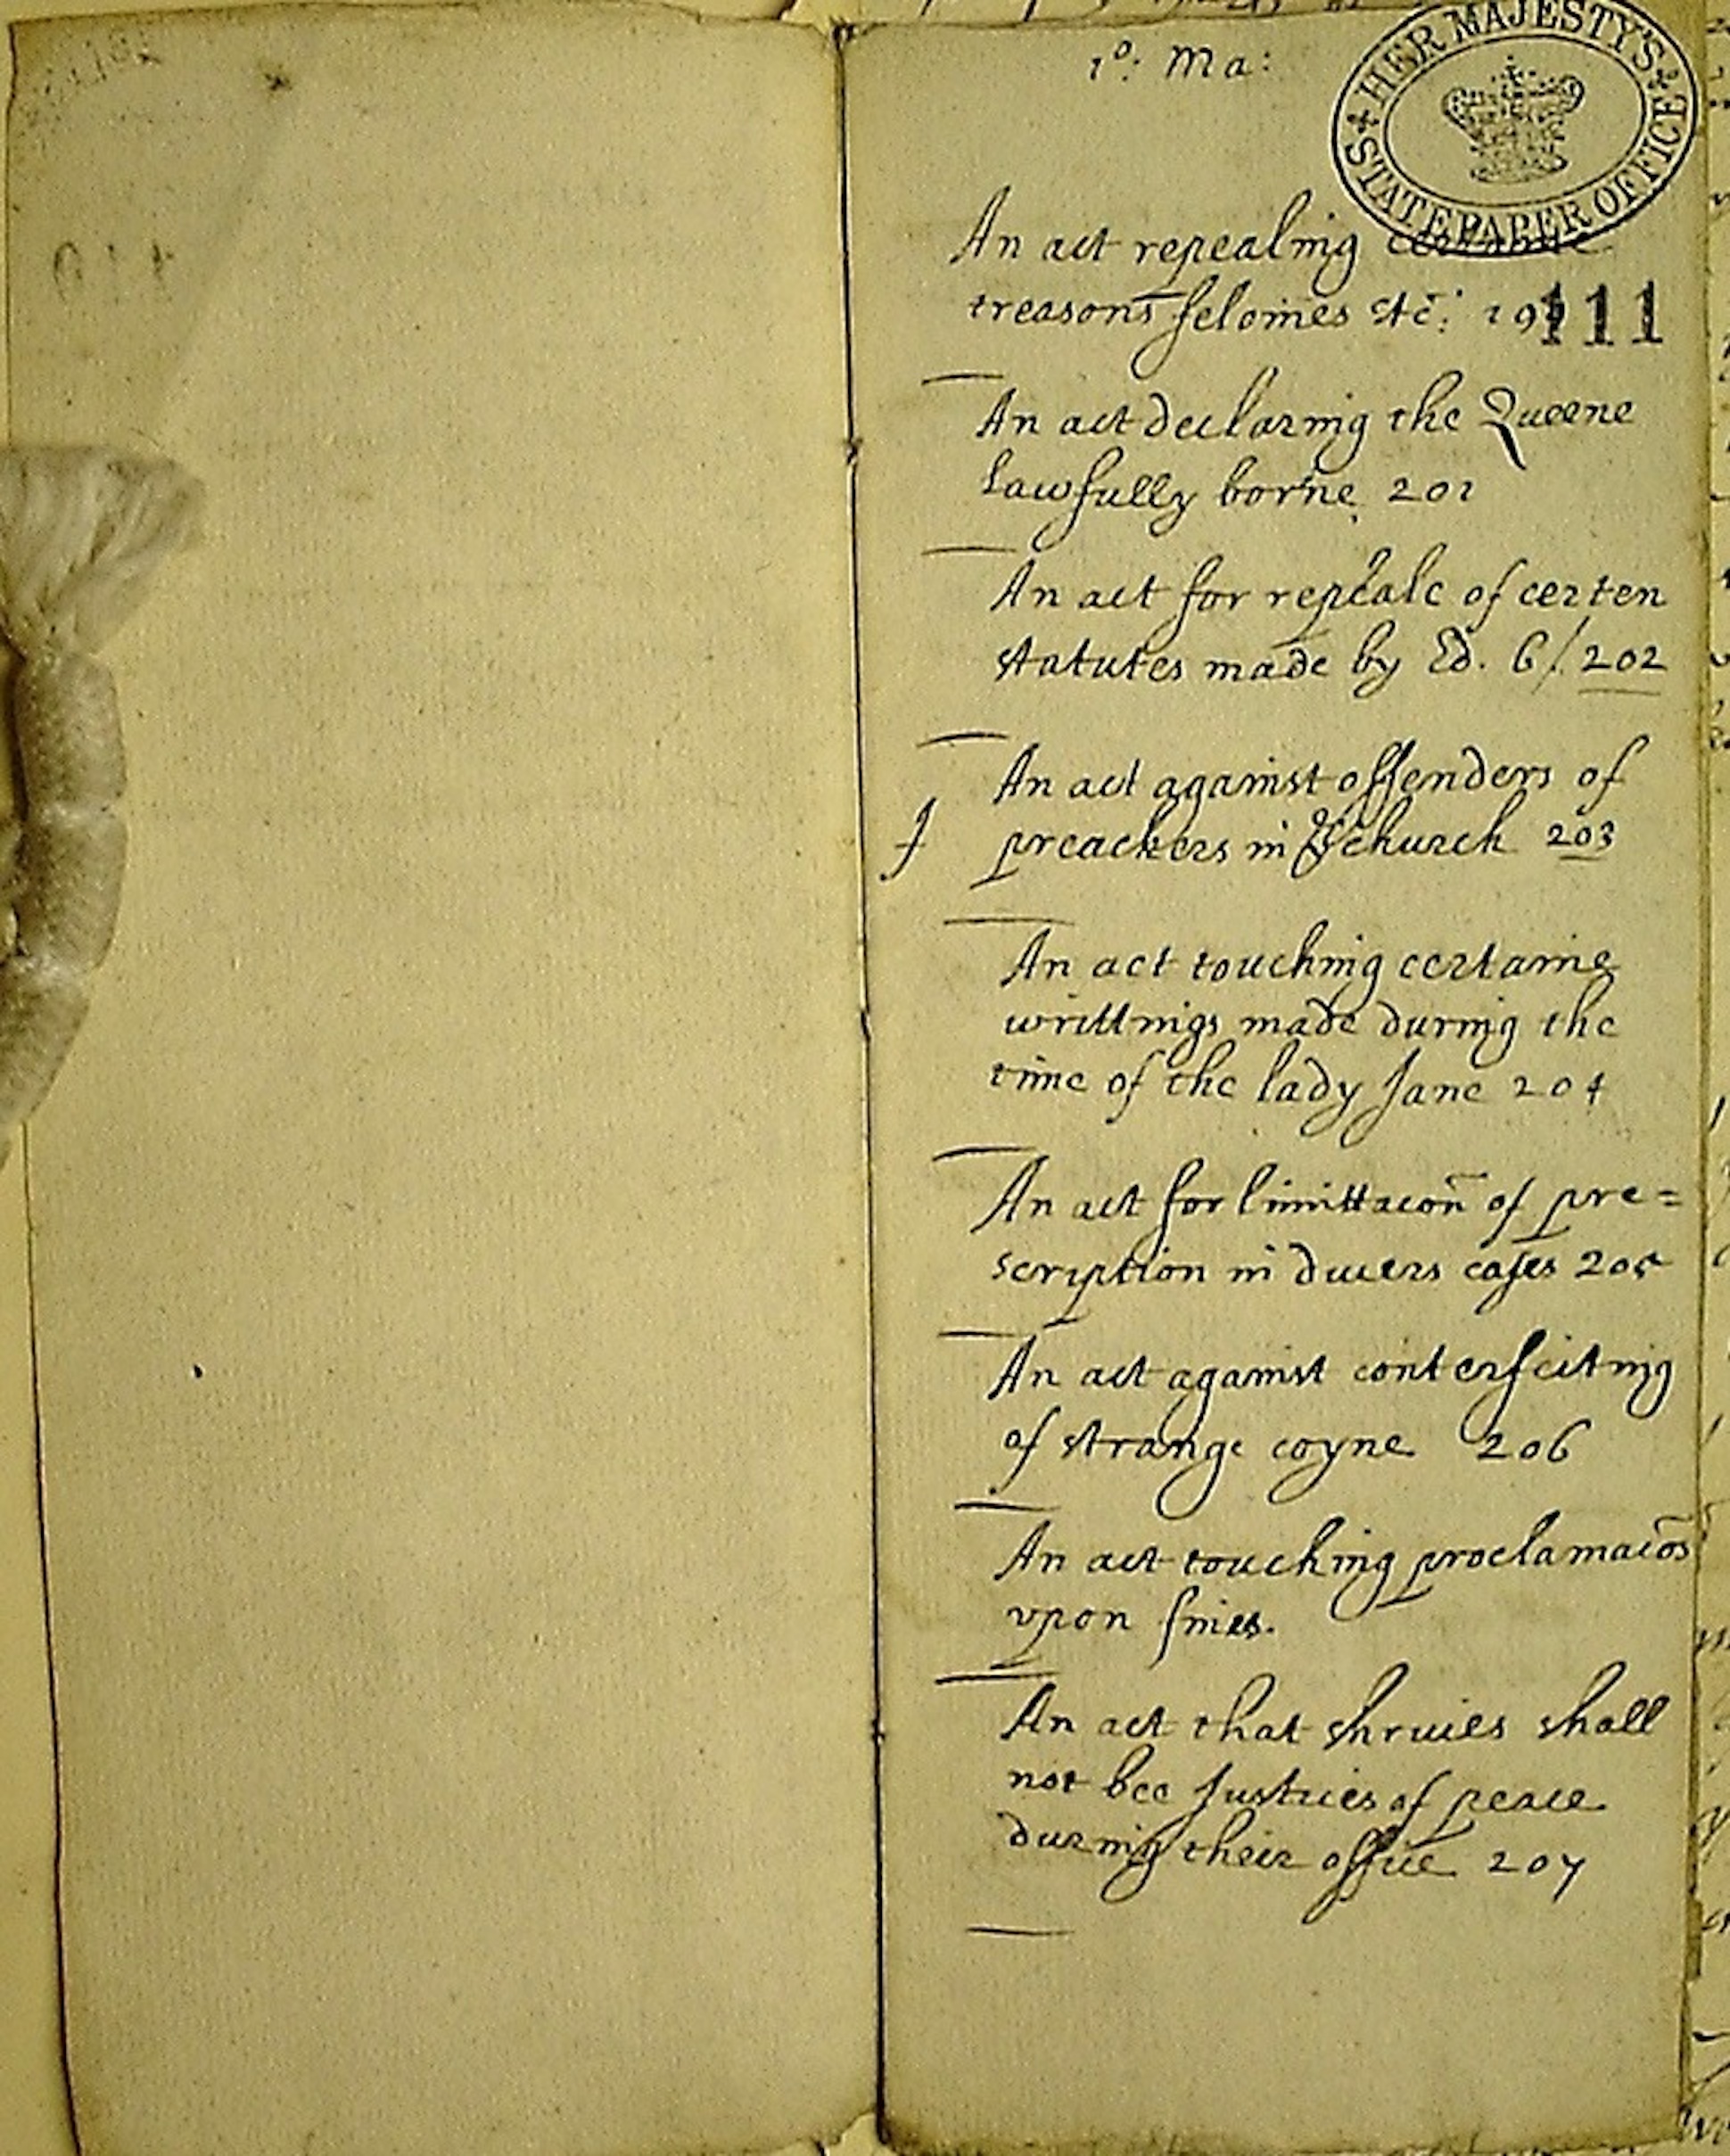 1º: Ma:
HER MAJESTY'S
STATE PAPER OFFICE
An act repealing certaine
treasons felonies &c: 19
111
An act declaring the Queene
lawfully borne 201
An act for repeale of certen
statutes made by Ed. 6/. 202
An act against offenders of
preachers in ye church 203
An act touching certaine
writtings made during the
time of the lady Jane 204
An act for limittacon̄ of pre=
scription in diuers cases 205
An act against conterfeiting
of strange coyne 206
An act touching proclamacōs
vpon fines.
An act that shruies shall
not bee Justices of peace
during their office 207